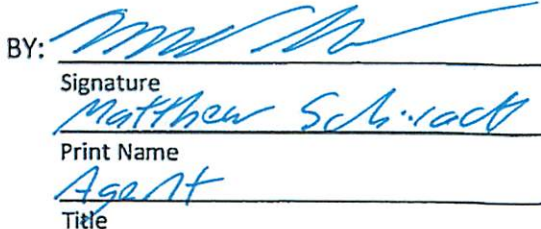 BY:
Signature
Matthew
Print Name
Agent
Title